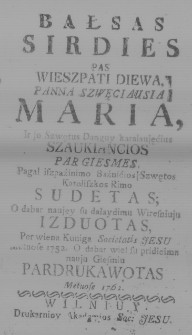 BAŁSAS
SIRDIES
PAS
WIESZPATI DIEWA,
PANNA SZWĘCIAUSIA
MARIA,
Ir jo Szwętus Danguy karalaujęcius
SZAUKIANCIOS
PAR GIESMES,
Pagal Iszpazinimo Baźnićios Szwętos
Katolickos Rimo
SUDETAS;
O dabar naujey su dalaydimu Wiresniuju
IZDUOTAS,
Par wiena Kuniga Societatis JESU
Metuose 1752. O dabar wiel su pridieimu
nauju Giesmiu
PARDRUKAWOTAS
Metuose 1761.
WILNIUY,
Drukarnioy Akademijus Soc: JESU.